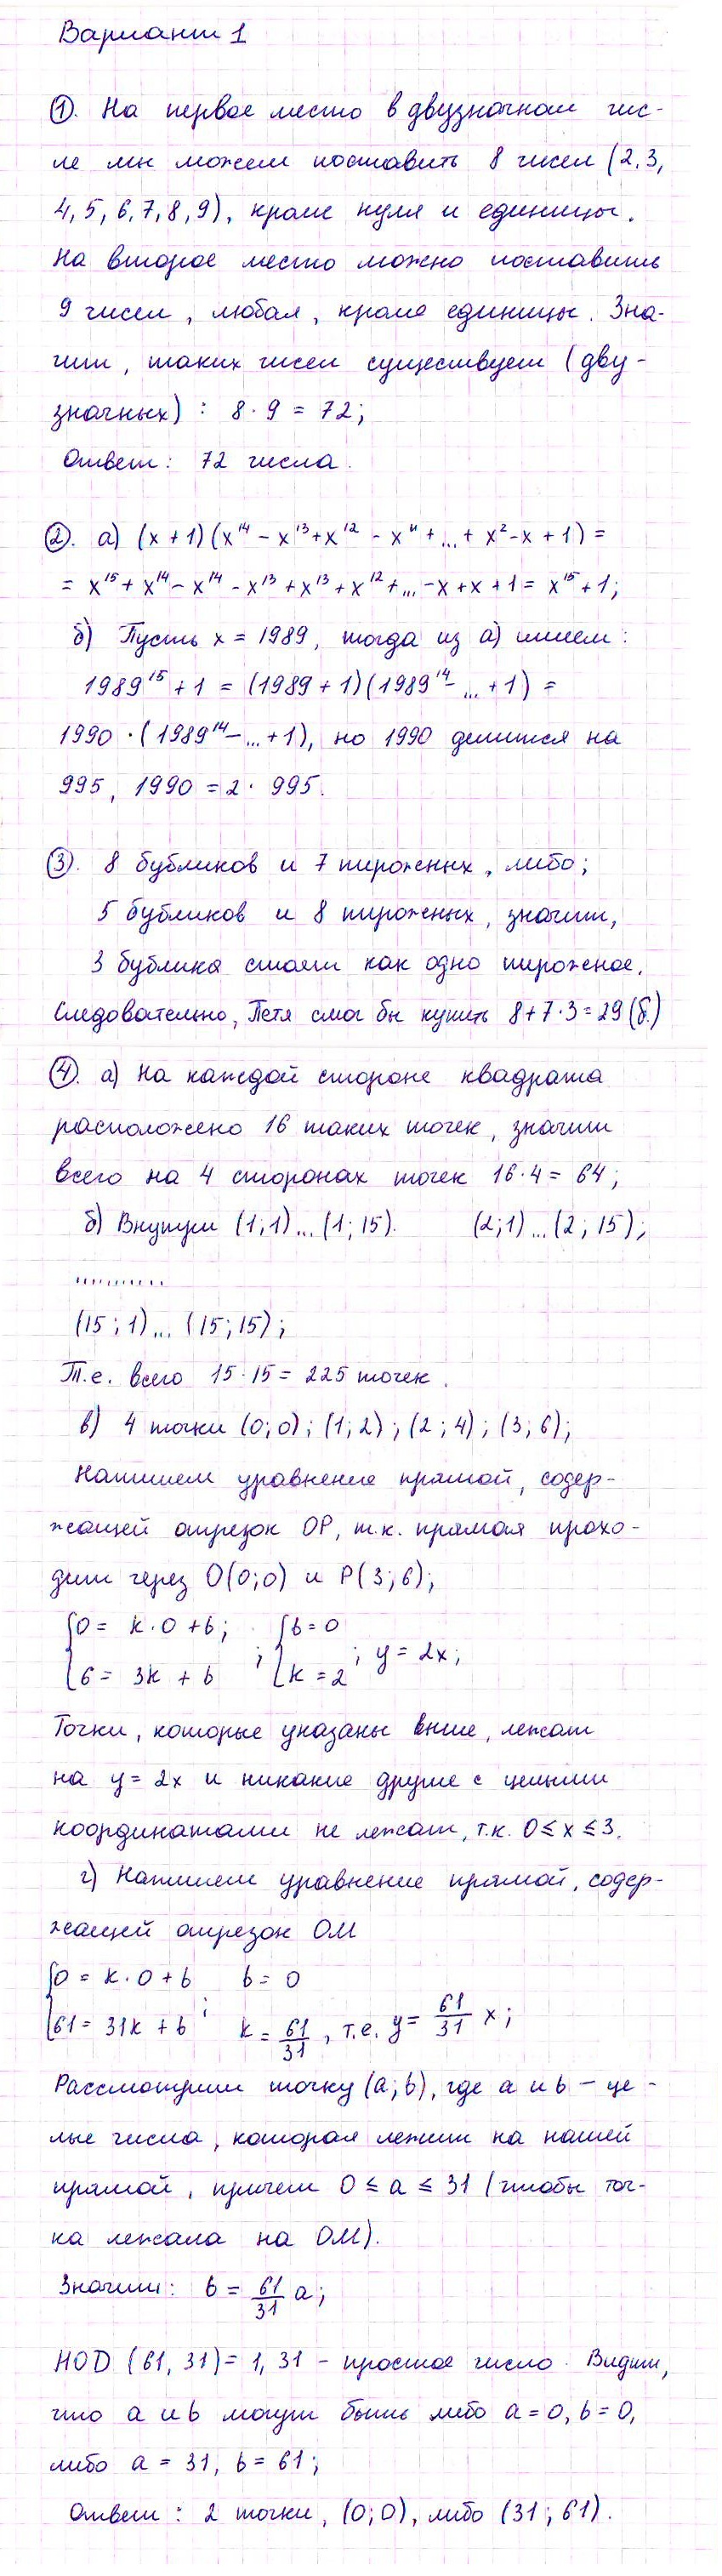 Вариант 1
①. На первое место в двузначном чис-
ле мы можем поставить 8 чисел (2,3,
4,5,6,7,8,9), кроме нуля и единицы.
На второе место можно поставить
9 чисел, любая, кроме единицы. Зна-
чит, таких чисел существует (дву-
значных) : 8·9 = 72;
Ответ: 72 числа.
②. а) (x+1)(x¹⁴ - x¹³ + x¹² - x¹¹ + ... + x² - x + 1) =
= x¹⁵ + x¹⁴ - x¹⁴ - x¹³ + x¹³ + x¹² + ... - x + x + 1 = x¹⁵ + 1;
б) Пусть x = 1989, тогда из а) имеем:
1989¹⁵ + 1 = (1989 + 1)(1989¹⁴ - ... + 1) =
1990 · (1989¹⁴ - ... + 1), но 1990 делится на
995, 1990 = 2 · 995.
③. 8 бубликов и 7 пироженых, либо;
5 бубликов и 8 пироженых, значит,
3 бублика стоят как одно пироженое.
Следовательно, Петя смог бы купить 8+7·3=29(б.)
④. а) На каждой стороне квадрата
расположено 16 таких точек, значит
всего на 4 сторонах точек 16·4 = 64;
б) Внутри (1;1)...(1;15). (2;1)...(2;15);
..........
(15;1)...(15;15);
Т.е. всего 15·15 = 225 точек.
в) 4 точки (0;0); (1;2); (2;4); (3;6);
Напишем уравнение прямой, содер-
жащей отрезок OP, т.к. прямая прохо-
дит через O(0;0) и P(3;6);
{0 = k·0 + b; {b = 0
{6 = 3k + b ; {k = 2 ; y = 2x;
Точки, которые указаны выше, лежат
на y = 2x и никакие другие с целыми
координатами не лежат, т.к. 0 ≤ x ≤ 3.
г) Напишем уравнение прямой, содер-
жащей отрезок ОМ
{0 = k·0 + b b = 0
{61 = 31k + b ; k = 61/31, т.е. y = 61/31 x;
Рассмотрим точку (a;b), где a и b - це-
лые числа, которая лежит на нашей
прямой, причем 0 ≤ a ≤ 31 (чтобы точ-
ка лежала на ОМ).
Значит: b = 61/31 a;
НОD (61, 31) = 1, 31 - простое число. Видим,
что a и b могут быть либо a = 0, b = 0,
либо a = 31, b = 61;
Ответ: 2 точки, (0;0), либо (31;61).